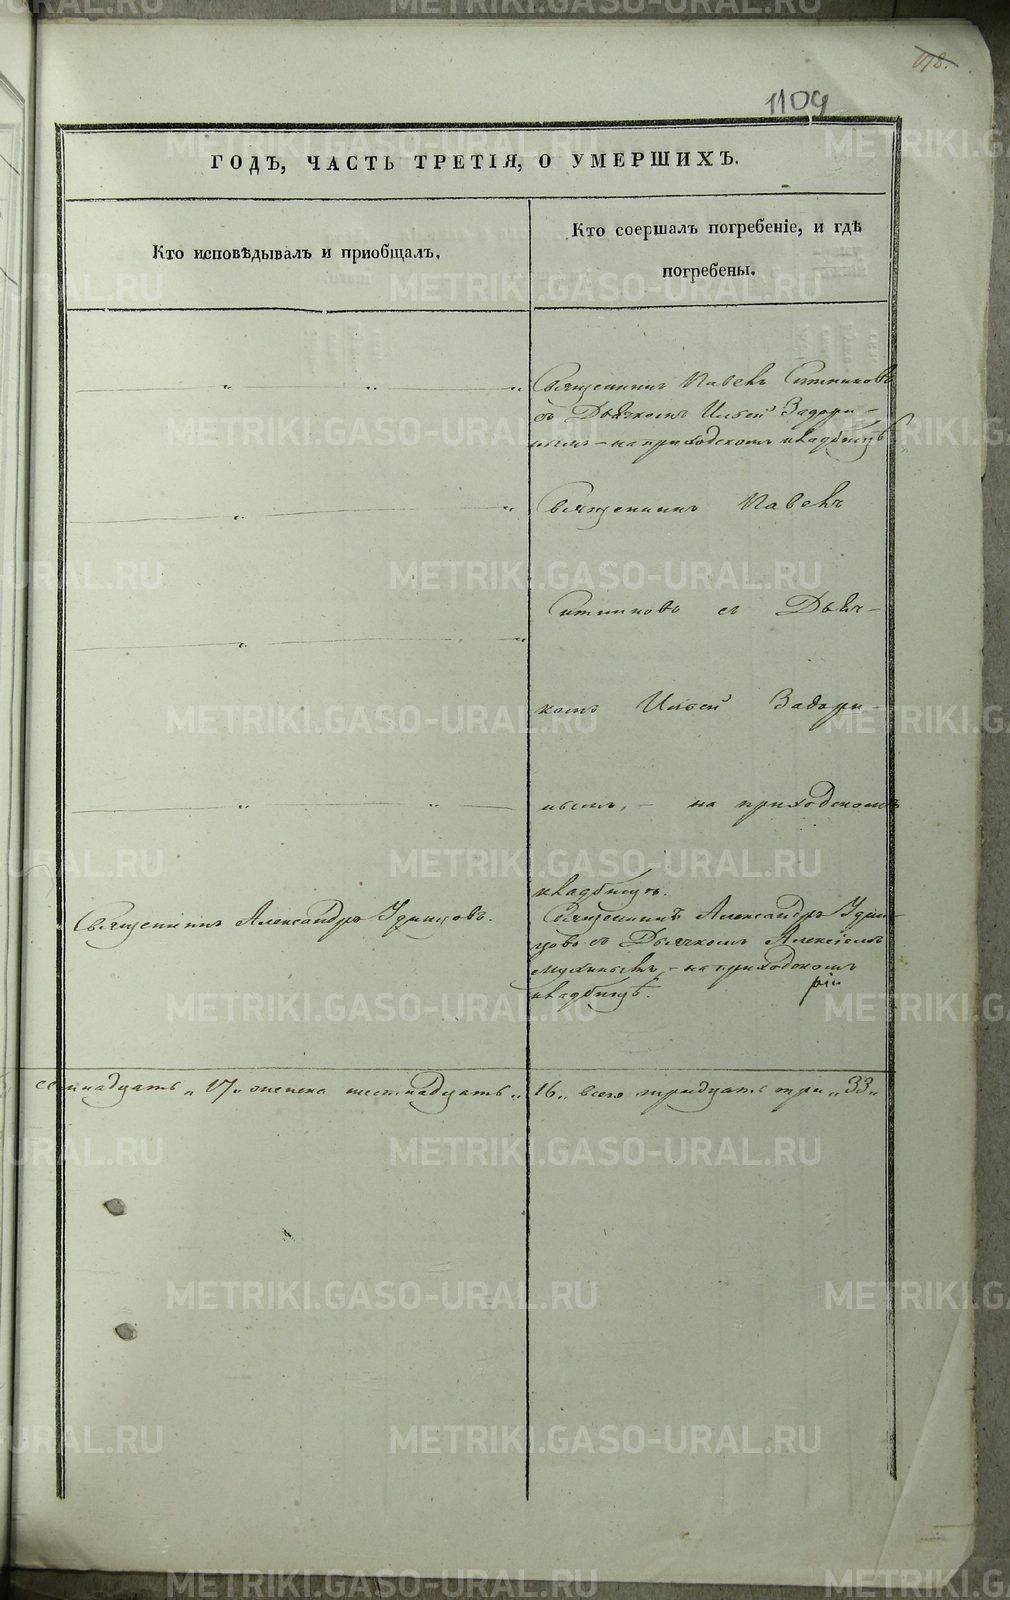 118.
1109
ГОДЪ, ЧАСТЬ ТРЕТІЯ, О УМЕРШИХЪ.
Кто исповѣдывалъ и приобщалъ.
Кто соершалъ погребеніе, и гдѣ
погребены.
Священникъ Павелъ Ситниковъ
съ Дьячкомъ Ильей Задори-
нымъ – на приходскомъ кладбищѣ
Священникъ Павелъ
Ситниковъ съ Дьяч-
комъ Ильей Задори-
нымъ, – на приходскомъ
кладбищѣ.
Священникъ Александръ Удинцовъ.
Священникъ Александръ Удин-
цовъ съ Дьячкомъ Алексѣемъ
– на приходскомъ
кладбищѣ.
семнадцать „17„ женска шестнадцать„ 16„ всего тридцать три „33„
METRIKI.GASO-URAL.RU